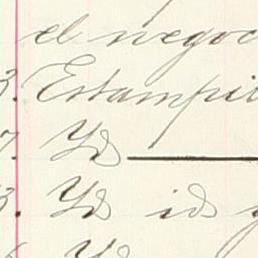 el negoc
3. Estampil
7. Yd
3. Yd id y
Yd